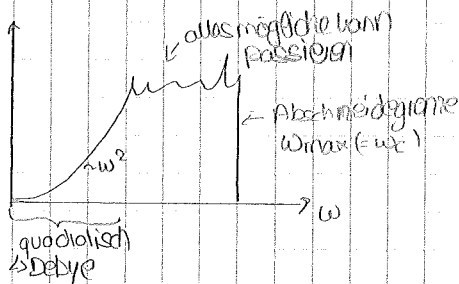 alles mögliche kann
passieren
← Abschneidegrenze
ωmax (= ωc)
~ω²
ω
quadratisch
↳ Debye